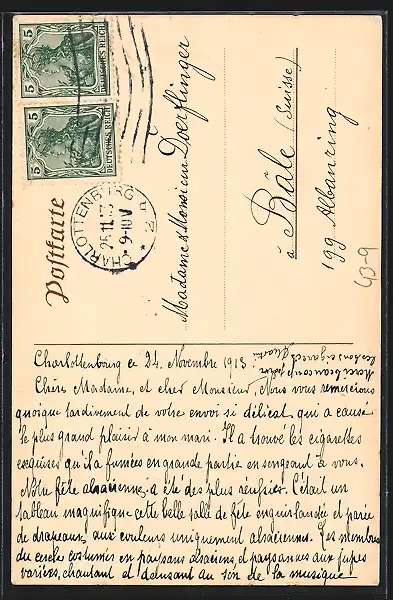 5
DEUTSCHES REICH
5
DEUTSCHES REICH
CHARLOTTENBURG
25.11.13
9-10V
* 2 n
Postkarte
Madame & Monsieur Doerflinger
à Bâle (Suisse)
199 Albanring
40-9
Charlottenbourg ce 24. Novembre 1913.
Chère Madame, et cher Monsieur, Nous vous remercions
quoique tardivement de votre envoi si délicat, qui a causé
le plus grand plaisir à mon mari. Il a trouvé les cigarettes
exquises qu'il a fumées en grande partie en songeant à vous.
Notre fête alsacienne, a été des plus réussies. C'était un
tableau magnifique cette belle salle de fête enguirlandée et parée
de drapeaux, aux couleurs uniquement alsaciennes. Les membres
du cercle costumés en paysans alsaciens, et paysannes aux jupes
variées, chantant et dansant au son de la musique!
Merci beaucoup pour
les bons cigares